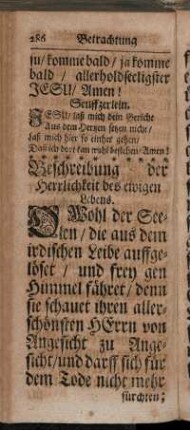 286 Betrachtung
nu/ komme bald/ ja komme
bald / allerholdseeligster
JESU/ Amen!
Seuffzerlein.
JESU/ laß mich dein Gerichte
Aus dem Hertzen setzen nicht/
laß mich hier so einher gehen/
Daß ich dort kan wohl bestehen/ Amen!
Beschreibung der
Herrlichkeit des ewigen
Lebens.
O Wohl der See-
len / die aus dem
irdischen Leibe auffge-
löset / und frey gen
Himmel fähret/ denn
sie schauet ihren aller-
schönsten HErrn von
Angesicht zu Ange-
sicht/ und darff sich für
dem Tode nicht mehr
fürchten;